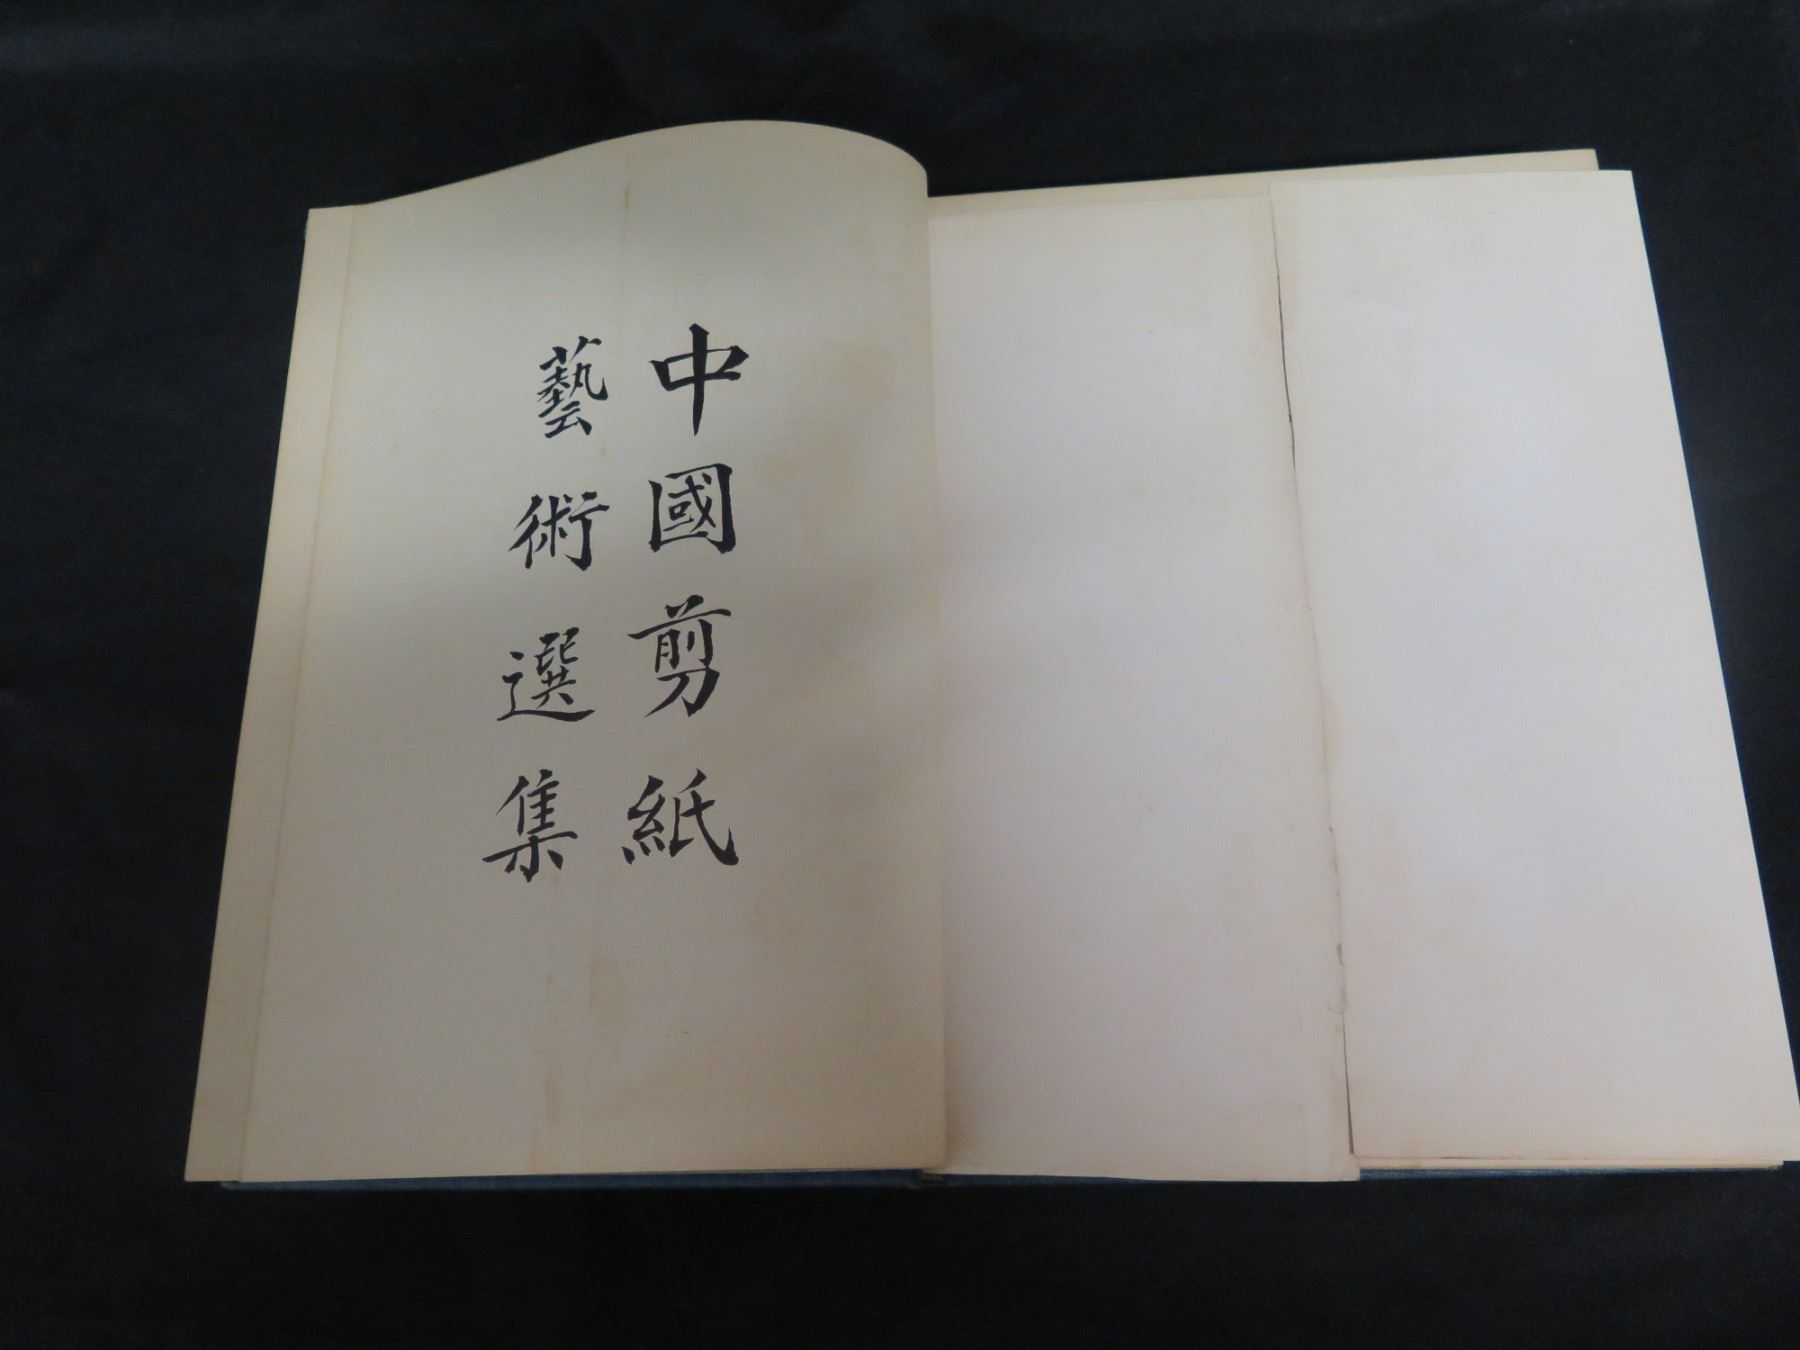 中國剪紙
藝術選集